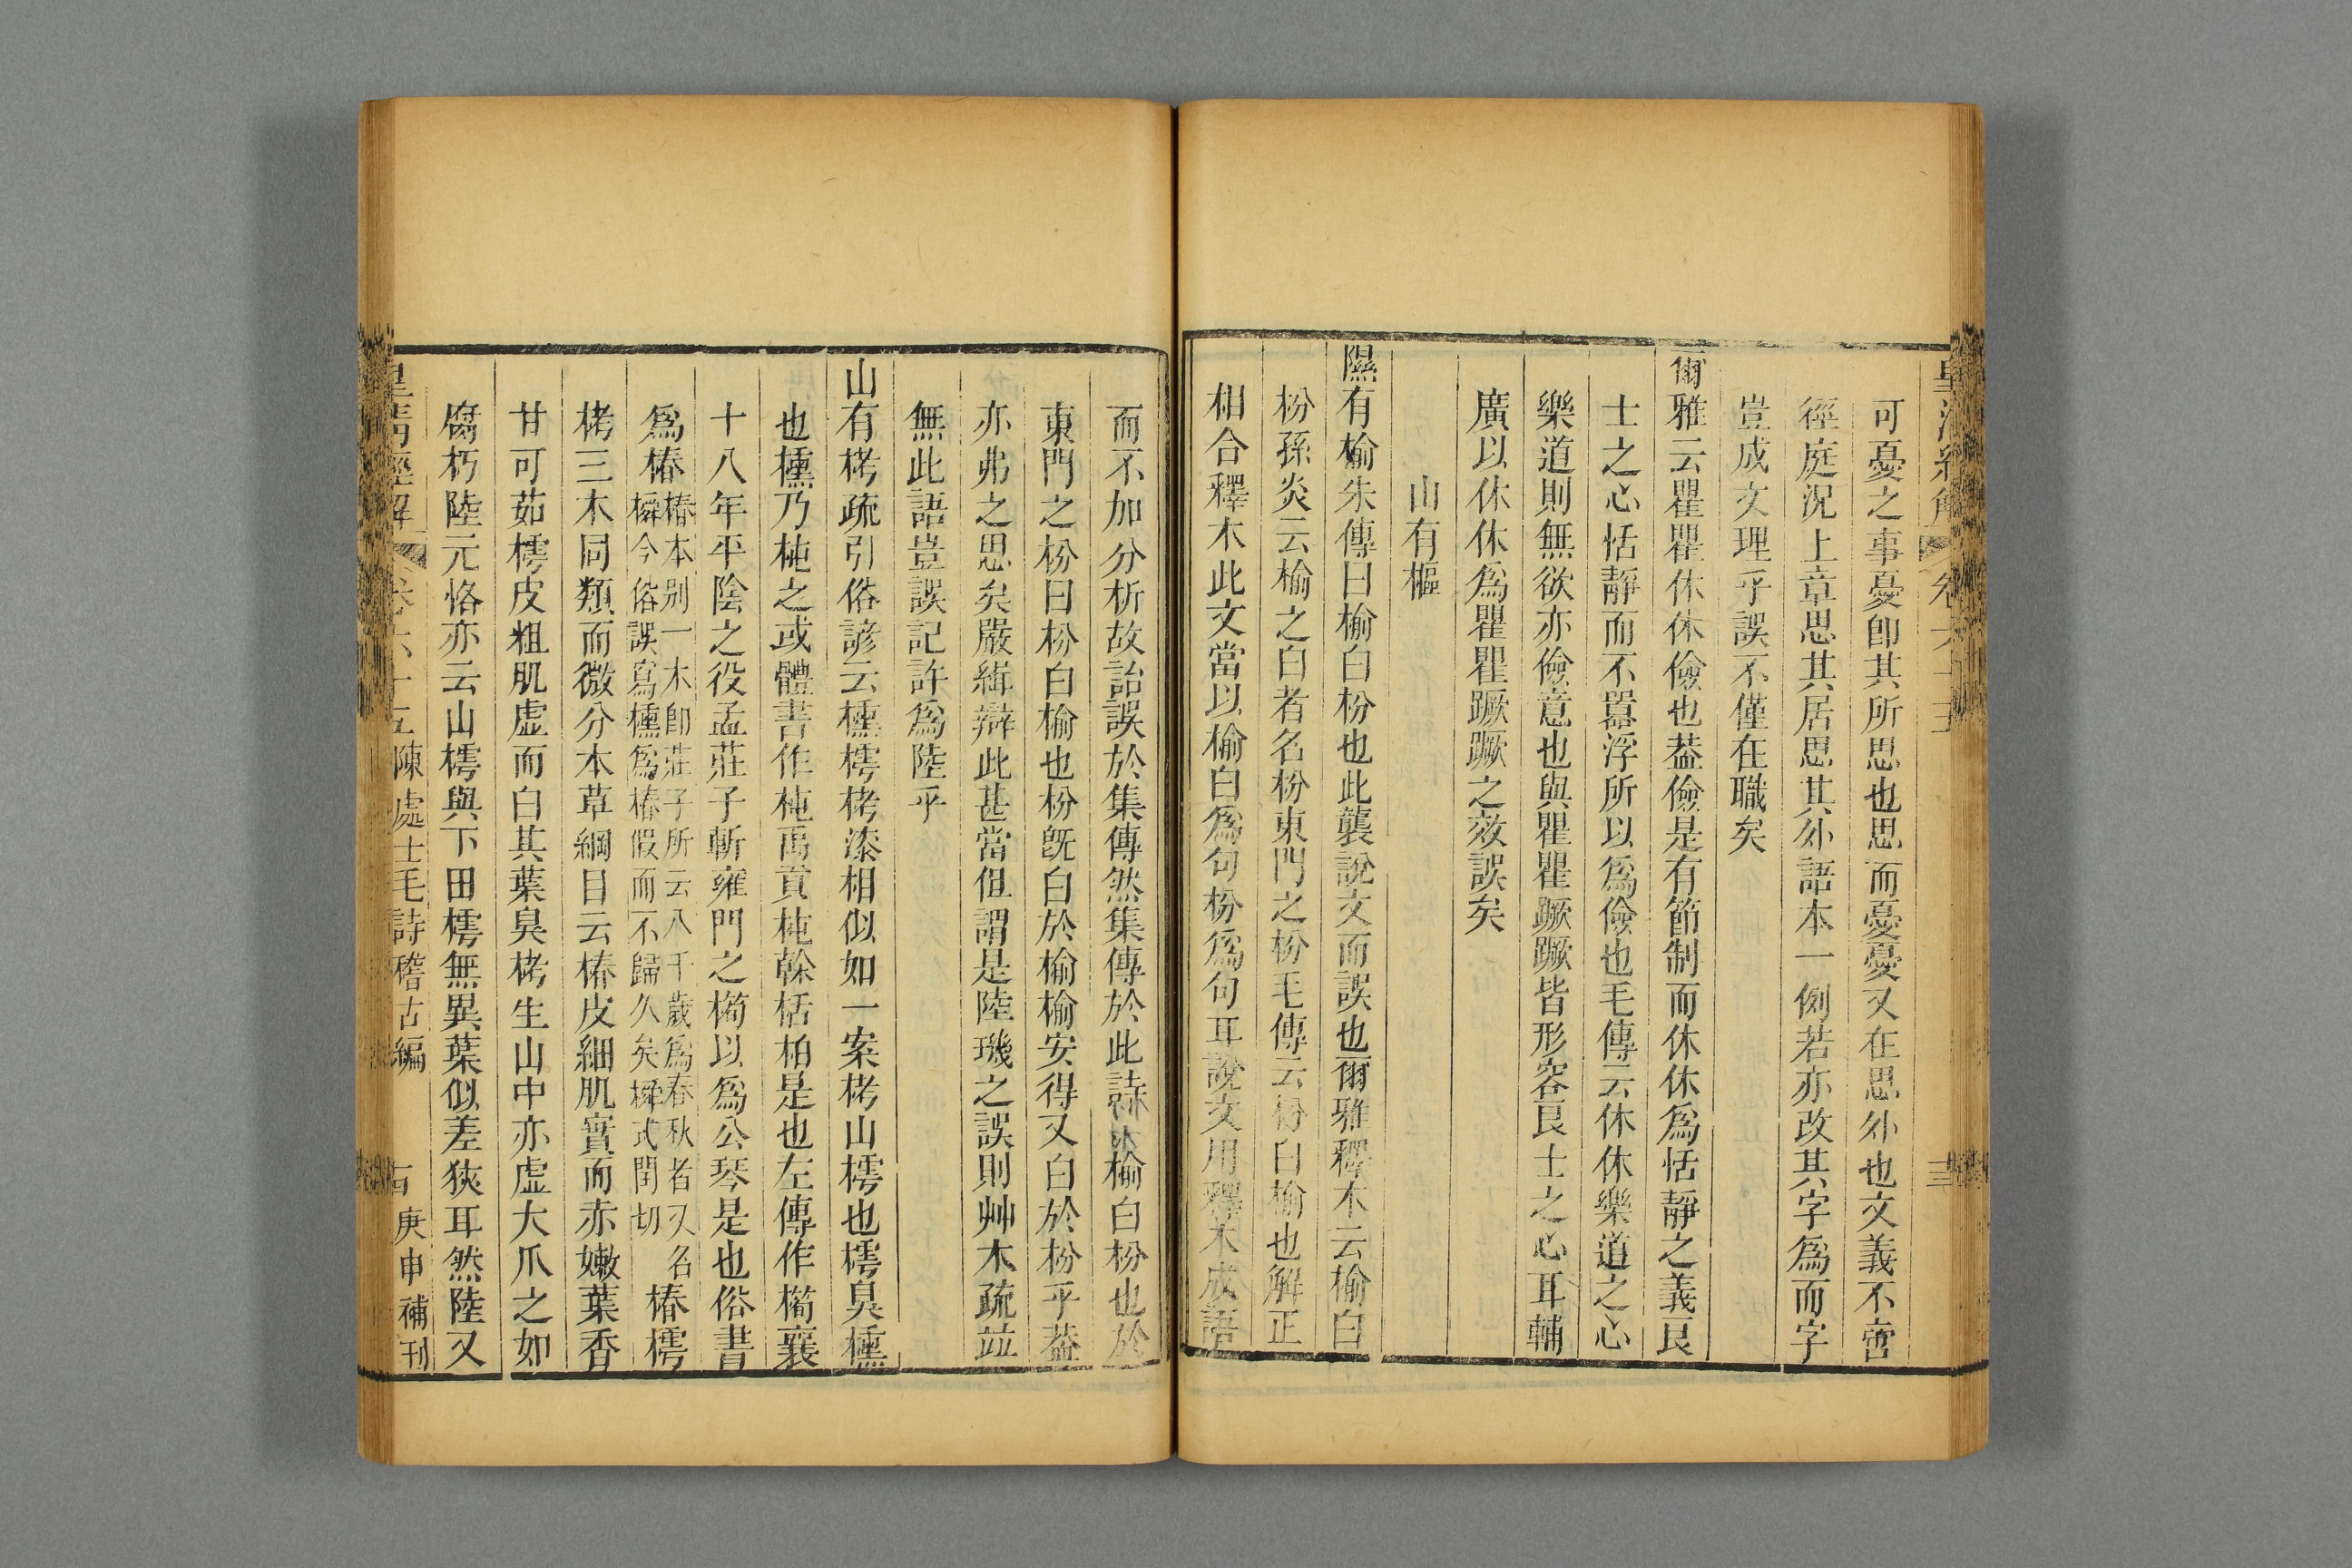 可憂之事憂卽其所思也思而憂憂又在思外也文義不啻
徑庭況上章思其居思其外語本一例若亦改其字爲而字
豈成文理乎誤不僅在職矣
爾雅云瞿瞿休休儉也葢儉是有節制而休休爲恬靜之義良
士之心恬靜而不嚣浮所以爲儉也毛傳云休休樂道之心
樂道則無欲亦儉意也與瞿瞿蹶蹶皆形容良士之心耳輔
廣以休休爲瞿瞿蹶蹶之效誤矣
山有樞
隰有榆朱傳曰榆白枌也此襲說文而誤也爾雅釋木云榆白
枌孫炎云榆之白者名枌東門之枌毛傳云枌白榆也解正
相合釋木此文當以榆白爲句枌爲句耳說文用釋木成語
而不加分析故詒誤於集傳然集傳於此詩朱榆白枌也於
東門之枌曰枌白榆也枌旣白於榆榆安得又白於枌乎葢
亦弗之思矣嚴緝辯此甚當但謂是陸璣之誤則艸木疏竝
無此語豈誤記許爲陸乎
山有栲疏引俗諺云櫄樗栲漆相似如一案栲山樗也樗臭櫄
也櫄乃杶之或體書作杶禹貢杶榦栝柏是也左傳作橁襄
十八年平陰之役孟莊子斬雍門之橁以爲公琴是也俗書
爲椿椿本別一木卽莊子所云八千歲爲春秋者又名橓今俗誤寫櫄爲椿假而不歸久矣橓式閏切椿樗
栲三木同類而微分本草綱目云椿皮細肌實而赤嫩葉香
甘可茹樗皮粗肌虛而白其葉臭栲生山中亦虛大爪之如
腐朽陸元恪亦云山樗與下田樗無異葉似差狹耳然陸又
皇清經解 卷六十五陳處士毛詩稽古編 庚申補刊